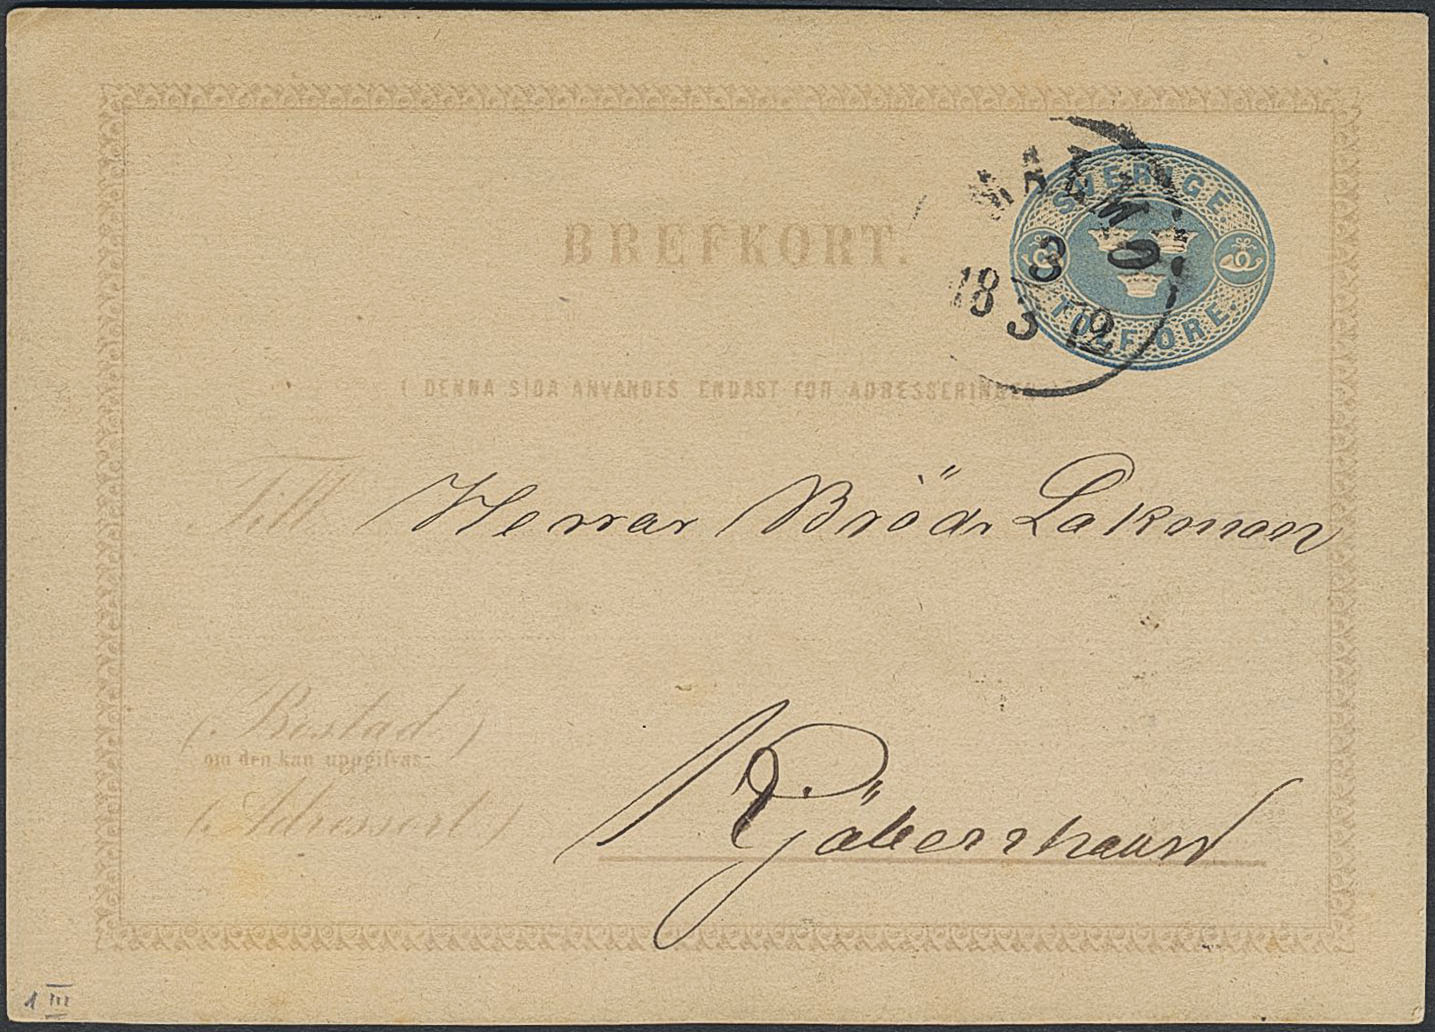 SVERIGE.
TOLF ÖRE.
MALMÖ
3
18 3 72
BREFKORT.
( DENNA SIDA ANVÄNDES ENDAST FÖR ADRESSERINGEN.)
Till Herrar Bröd: Lakman
(: Bostad :)
om den kan uppgifvas.
(: Adressort :)
Kjöbenhavn
1 III